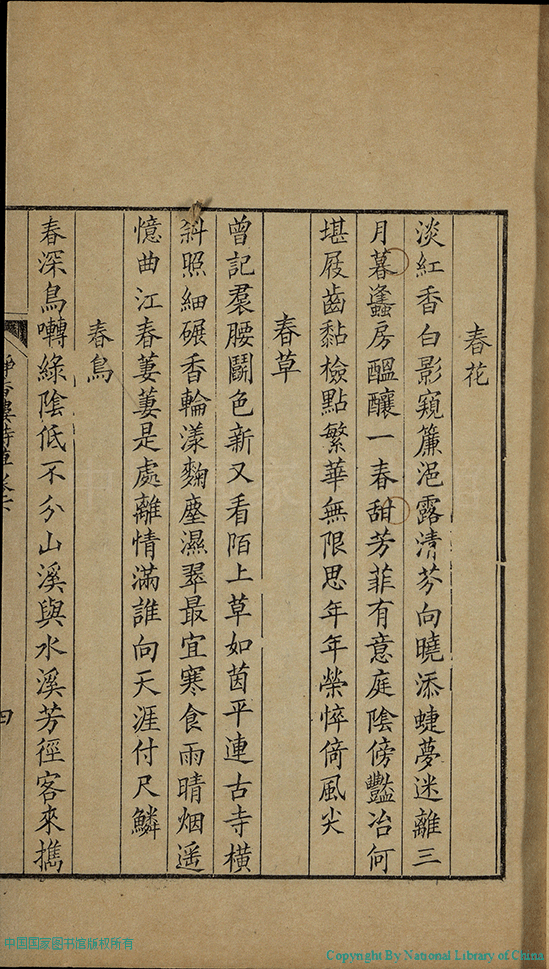 春花
淡紅香白影窺簾浥露清芬向曉添蜨夢迷離三
月暮蠭房醞釀一春甜芳菲有意庭陰傍豔冶何
堪屐齒黏檢點繁華無限思年年榮悴倚風尖
春草
曾記裠腰鬭色新又看陌上草如茵平連古寺橫
斜照細碾香輪漾麴塵濕翠最宜寒食雨晴烟遥
憶曲江春萋萋是處離情滿誰向天涯付尺鱗
春鳥
春深鳥囀綠陰低不分山溪與水溪芳徑客來攜
四
中国国家图书馆版权所有
Copyright By National Library of China